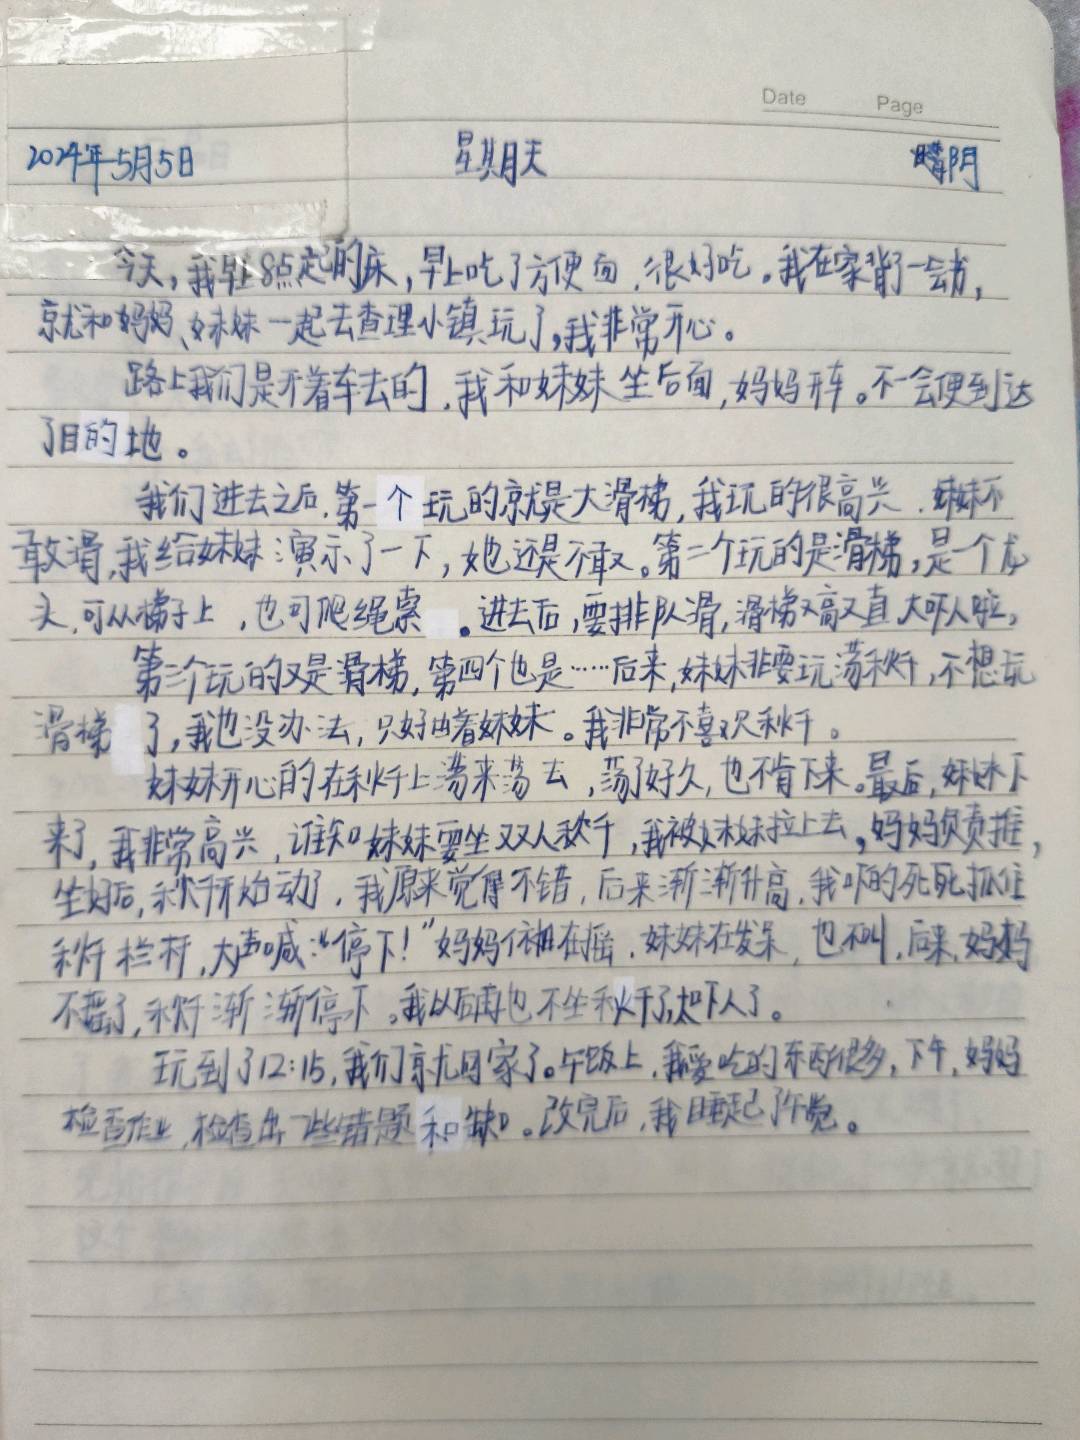 Date Page
2024年5月5日 星期天 晴阴
今天,我早上8点起的床,早上吃了方便面,很好吃。我在家背了一会书,
就和妈妈、妹妹一起去查理小镇玩了,我非常开心。
路上我们是开着车去的,我和妹妹坐后面,妈妈开车。不一会便到达
了目的地。
我们进去之后,第一个玩的就是大滑梯,我玩的很高兴,妹妹不
敢滑,我给妹妹演示了一下,她还是不敢。第二个玩的是滑梯,是一个龙
头,可从梯子上,也可爬绳索。进去后,要排队滑,滑梯又高又直,太吓人啦,
第三个玩的又是滑梯,第四个也是……后来,妹妹非要玩荡秋千,不想玩
滑梯了,我也没办法,只好由着妹妹。我非常不喜欢秋千。
妹妹开心的在秋千上荡来荡去,荡了好久,也不肯下来。最后,妹妹下
来了,我非常高兴,谁知妹妹要坐双人秋千,我被妹妹拉上去,妈妈负责推,
坐好后,秋千开始动了,我原来觉得不错,后来渐渐升高,我吓的死死抓住
秋千栏杆,大声喊:“停下!”妈妈依旧在摇,妹妹在发呆,也不叫,后来,妈妈
不摇了,秋千渐渐停下。我以后再也不坐秋千了,太吓人了。
玩到了12:15,我们就回家了。午饭上,我爱吃的东西很多,下午,妈妈
检查作业,检查出一些错题和缺口。改完后,我睡起了午觉。